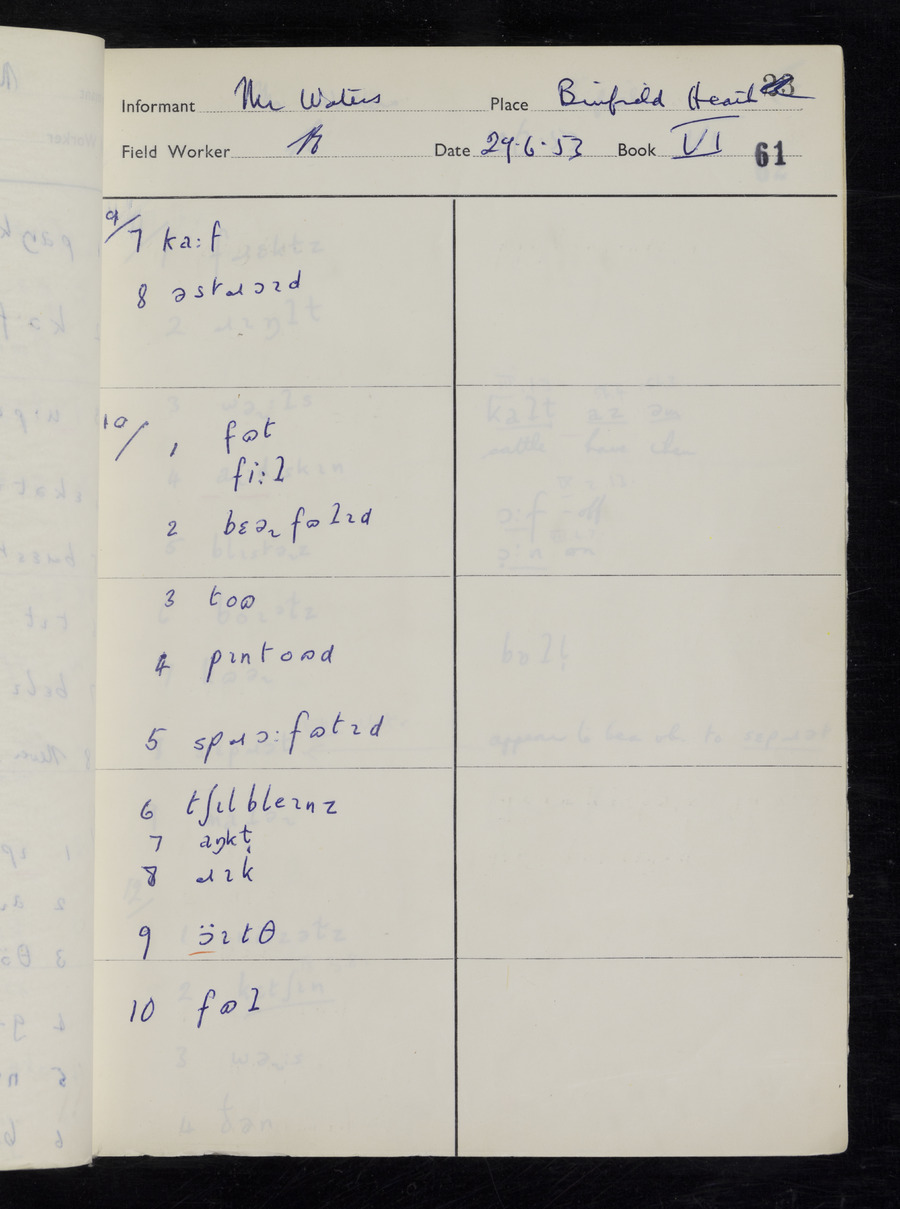 Informant Mr Waters Place Binfield Heath
Field Worker Date 29.6.53 Book VI 61
9/7 ka:f
8 əstɹɔɪd
10/1 fʊt
fi:l
2 bɛəɪfʊlɪd
3 toʊ
4 pɪntoʊd
5 spɹɔ:fʊtɪd
6 tʃɪlbleɪnz
7 aŋkɫ̩
8 ɹɪk
9 ɔ̈ɪtθ
10 fʊl